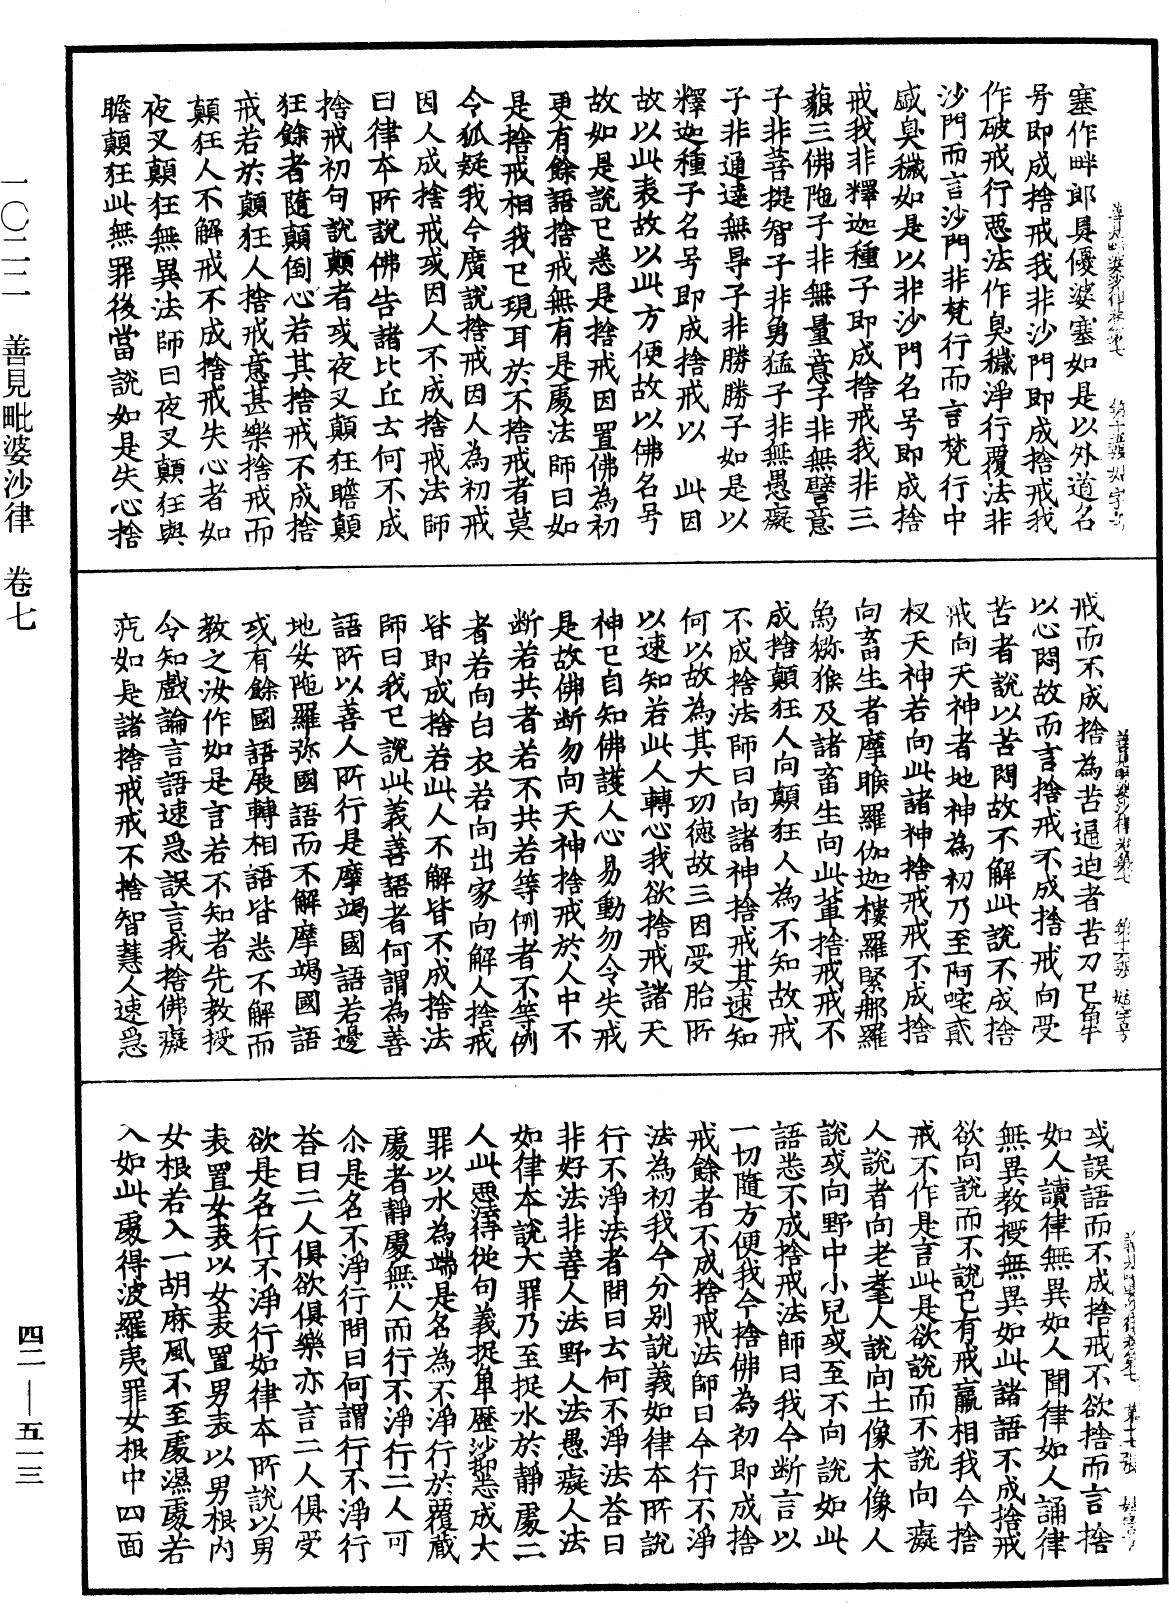 塞作畔郎具優婆塞如是以外道名
号即成捨戒我非沙門即成捨戒我
作破戒行惡法作臭穢淨行覆法非
沙門而言沙門非梵行而言梵行中
盛臭穢如是以非沙門名号即成捨
戒我非釋迦種子即成捨戒我非三
藐三佛陁子非無量意子非無譬意
子非菩提智子非勇猛子非無愚癡
子非通達無㝵子非勝勝子如是以
釋迦種子名号即成捨戒以 此因
故以此表故以此方便故以佛名号
故如是說已悉是捨戒因置佛為初
更有餘語捨戒無有是處法師曰如
是捨戒相我已現耳於不捨戒者莫
令狐疑我今廣說捨戒因人為初戒
因人成捨戒或因人不成捨戒法師
曰律本所說佛告諸比丘云何不成
捨戒初句說顛者或夜叉顛狂瞻顛
狂餘者隨顛倒心若其捨戒不成捨
戒若於顛狂人捨戒意甚樂捨戒而
顛狂人不解戒不成捨戒失心者如
夜叉顛狂無異法師曰夜叉顛狂與
瞻顛狂此無罪後當說如是失心捨
戒而不成捨為苦逼迫者苦刀已角牛
以心悶故而言捨戒不成捨戒向受
苦者說以苦悶故不解此說不成捨
戒向天神者地神為初乃至阿咤貳
杈天神若向此諸神捨戒戒不成捨
向畜生者摩睺羅伽迦樓羅緊那羅
為獼猴及諸畜生向此輩捨戒戒不
成捨顛狂人向顛狂人為不知故戒
不成捨法師曰向諸神捨戒其速知
何以故為其大功德故三因受胎所
以速知若此人轉心我欲捨戒諸天
神已自知佛護人心易動勿令失戒
是故佛断勿向天神捨戒於人中不
断若共者若不共若等例者不等例
者若向白衣若向出家向解人捨戒
皆即成捨若此人不解皆不成捨法
師曰我已說此義善語者何謂為善
語所以善人所行是摩竭國語若邊
地安陁羅弥國語而不解摩竭國語
或有餘國語展轉相語皆悉不解而
教之汝作如是言若不知者先教授
令知戲論言語速急誤言我捨佛癡
疣如是諸捨戒戒不捨智慧人速急
或誤語而不成捨戒不欲捨而言捨
如人讀律無異如人聞律如人誦律
無異教授無異如此諸語不成捨戒
欲向說而不說已有戒羸相我今捨
戒不作是言此是欲說而不說向癡
人說者向老耄人說向土像木像人
說或向野中小兒或至不向說如此
語悉不成捨戒法師曰我今断言以
一切隨方便我今捨佛為初即成捨
戒餘者不成捨戒法師曰今行不淨
法為初我今分别說義如律本所說
行不淨法者問曰云何不淨法荅曰
非好法非善人法野人法愚癡人法
如律本說大罪乃至捉水於靜處二
人此惡法得從句義捉卑歷沙抑悉成大
罪以水為端是名為不淨行於覆藏
處者靜處無人而行不淨行二人可
尒是名不淨行問曰何謂行不淨行
荅曰二人俱欲俱樂亦言二人俱受
欲是名行不淨行如律本所說以男
表置女表以女表置男表以男根内
女根若入一胡麻風不至處濕處若
入如此處得波羅夷罪女根中四面
一〇二二 善見毗婆沙律 卷七
四二—五一三